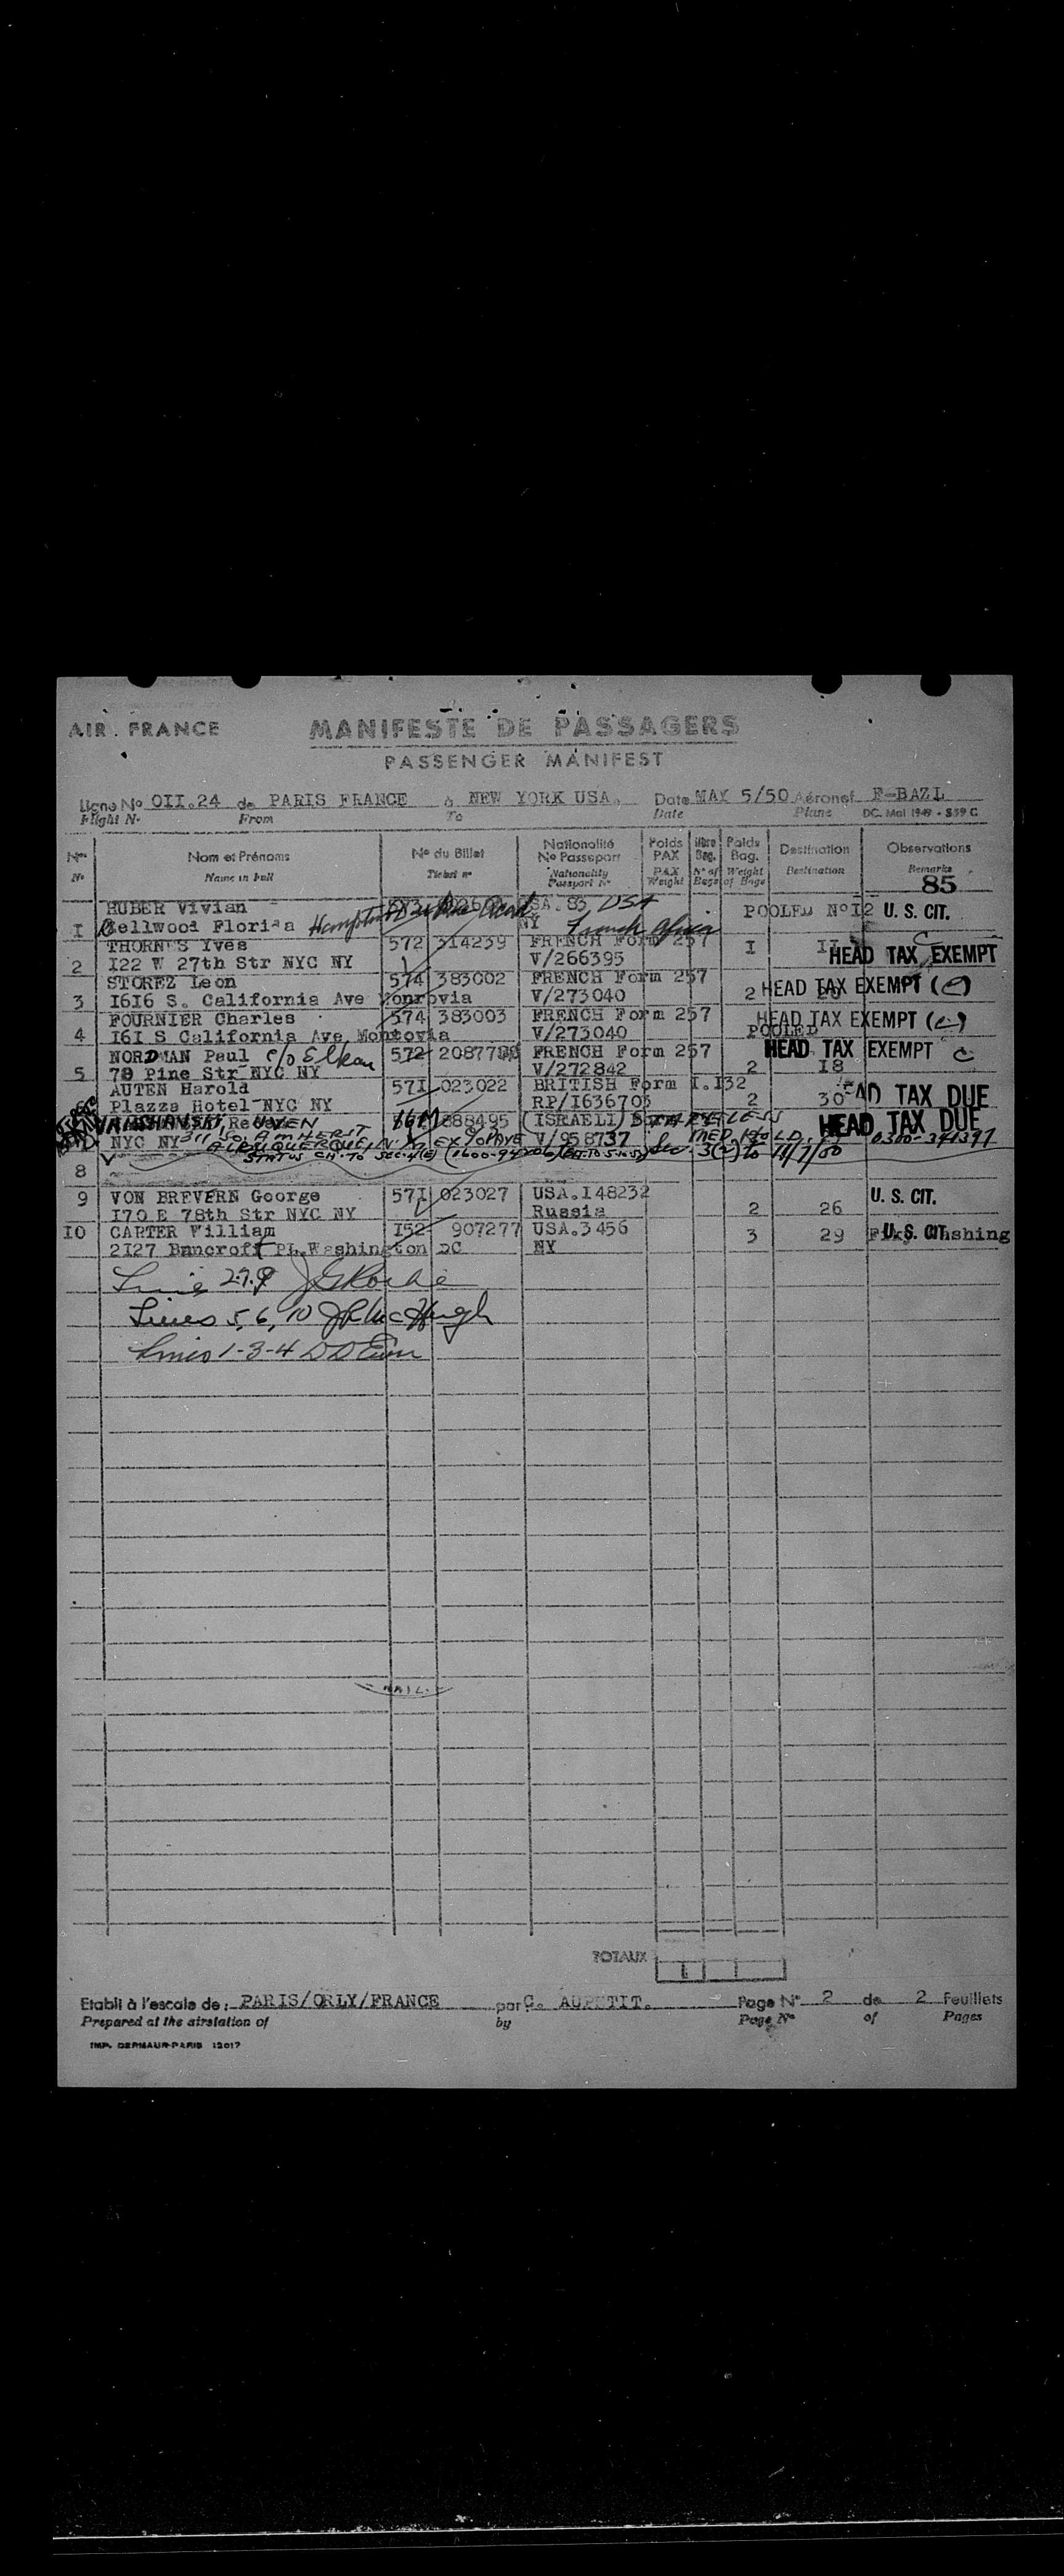 AIR FRANCE
MANIFESTE DE PASSAGERS
PASSENGER MANIFEST
Ligne No OII.24 de PARIS FRANCE à NEW YORK USA. Date MAY 5/50 Aéronef F-BAZL
Flight No From To Date Plane DC. Mai 1949 - 839 C
Nos Nom et Prénoms No du Billet Nationalité No Passeport Poids PAX Nbre Bag. Poids Bag. Destination Observations
No Name in full Ticket no Nationality Passport No PAX Weight No of Bags Weight of Bags Destination Remarks
85
HUBER Vivian USA. 83 USA POOLED No I2 U. S. CIT.
I Cellwood Florida NY French Africa
THORNES Yves 572 314239 FRENCH Form 257 I HEAD TAX EXEMPT C
2 I22 W 27th Str NYC NY V/266395
STOREZ Leon 574 383002 FRENCH Form 257 HEAD TAX EXEMPT (C)
3 I6I6 S. California Ave Monrovia V/273040 2
FOURNIER Charles 574 383003 FRENCH Form 257 HEAD TAX EXEMPT (C)
4 I6I S California Ave Montovia V/273040 POOLED
NORDMAN Paul c/o Elkan 572 FRENCH Form 257 HEAD TAX EXEMPT C
5 79 Pine Str NYC NY V/272842 2 I8
AUTEN Harold 57I 023022 BRITISH Form I.I32
6 Plazza Hotel NYC NY RP/I636705 2 30 HEAD TAX DUE
UVEN 888495 (ISRAELI) STATELESS HEAD TAX DUE
NYC NY 311 SO. AMHERST V/958737 MED. HOLD. 0300-341397
ALBUQUERQUE, N. M.
STATUS CH. TO SEC. 4(E) Sec. 3(2) to 11/7/50
8
9 VON BREVERN George 57I 023027 USA.I48232 U. S. CIT.
I70 E 78th Str NYC NY Russia 2 26
IO CARTER William I52 907277 USA.3456 3 29 U. S. CIT.
2I27 Bancroft Pl.Washington DC NY
Lines 2.7.9 J G Roche
Lines 5, 6, 10 J R McHugh
Lines 1-3-4
TOTAUX
Etabli à l'escale de : PARIS/ORLY/FRANCE par C. AUPETIT. Page No 2 de 2 Feuillets
Prepared at the airstation of by Page No of Pages
IMP. DERMAUR-PARIS 12017